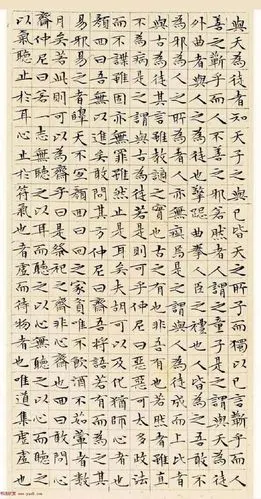 與天為徒者知天子之與己皆天之所子而獨以己言蘄乎而人
善之蘄乎而人不善之邪若然者人謂之童子是之謂與天為徒
外曲者與人之為徒也擎跽曲拳人臣之禮也人皆為之吾敢不
為邪為人之所為者人亦無疵焉是之謂與人為徒成而上比者
與古為徒其言雖教讁之實也古之有也非吾有也若然者雖直
不為病是之謂與古為徒若是則可乎仲尼曰惡惡可太多政法
而不諜雖固亦無罪雖然止是耳矣夫胡可以及化猶師心者也
顏回曰吾無以進矣敢問其方仲尼曰齋吾將語若有而為之其
易邪易之者皞天不宜顏回曰回之家貧唯不飲酒不茹葷者數
月矣若此則可以為齋乎曰是祭祀之齋非心齋也回曰敢問心
齋仲尼曰若一志無聽之以耳而聽之以心無聽之以心而聽之
以氣聽止於耳心止於符氣也者虛而待物者也唯道集虛虛也